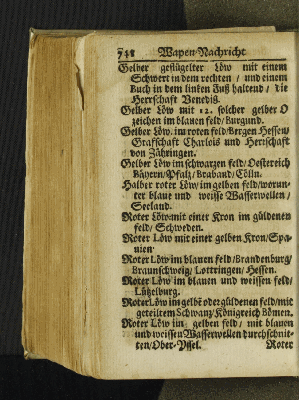 Wapen-Nachricht
Gelber geflügelter Löw mit einem
Schwert in dem rechten / und einem
Buch in dem linken Fuß haltend / die
Herrschaft Venediß.
Gelber Löw mit 12. solcher gelber O
zeichen im blauen feld / Burgund.
Gelber Löw im roten feld / Bergen Hessen /
Grafschaft Charlois und Herrschaft
von Zähringen.
Gelber Löw im schwarzen feld / Oestereich
Bäyern / Pfalz / Braband / Cölln.
Halber roter Löw / im gelben feld / worun-
ter blaue und weisse Wasserwellen /
Seeland.
Roter Löw mit einer Kron im güldenen
feld / Schweden.
Roter Löw mit einer gelben Kron / Spa-
nien.
Roter Löw im blauen feld / Brandenburg /
Braunschweig / Lottringen / Hessen.
Roter Löw im blauen und weissen feld /
Lützelburg.
Roter Löw im gelbē oder güldenen feld / mit
geteiltem Schwanz / Königreich Bömen.
Roter Löw im gelben feld / mit blauen
und weissen Wasserwellen durchschnit-
ten / Ober-Yssel. Roter